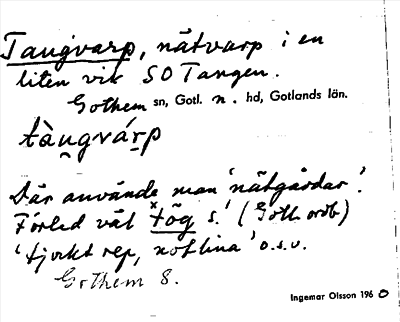 Tangvarp, nätvarp i en
liten vik SO Tangen.
Gothem sn, Gotl. n. hd, Gotlands län.
tàngvárp
Där använde man 'nätgärdar'.
Förled väl tög s. (Gotl. ordb)
'tjockt rep, notlina' o.s.v.
Gothem 8.
Ingemar Olsson 1960